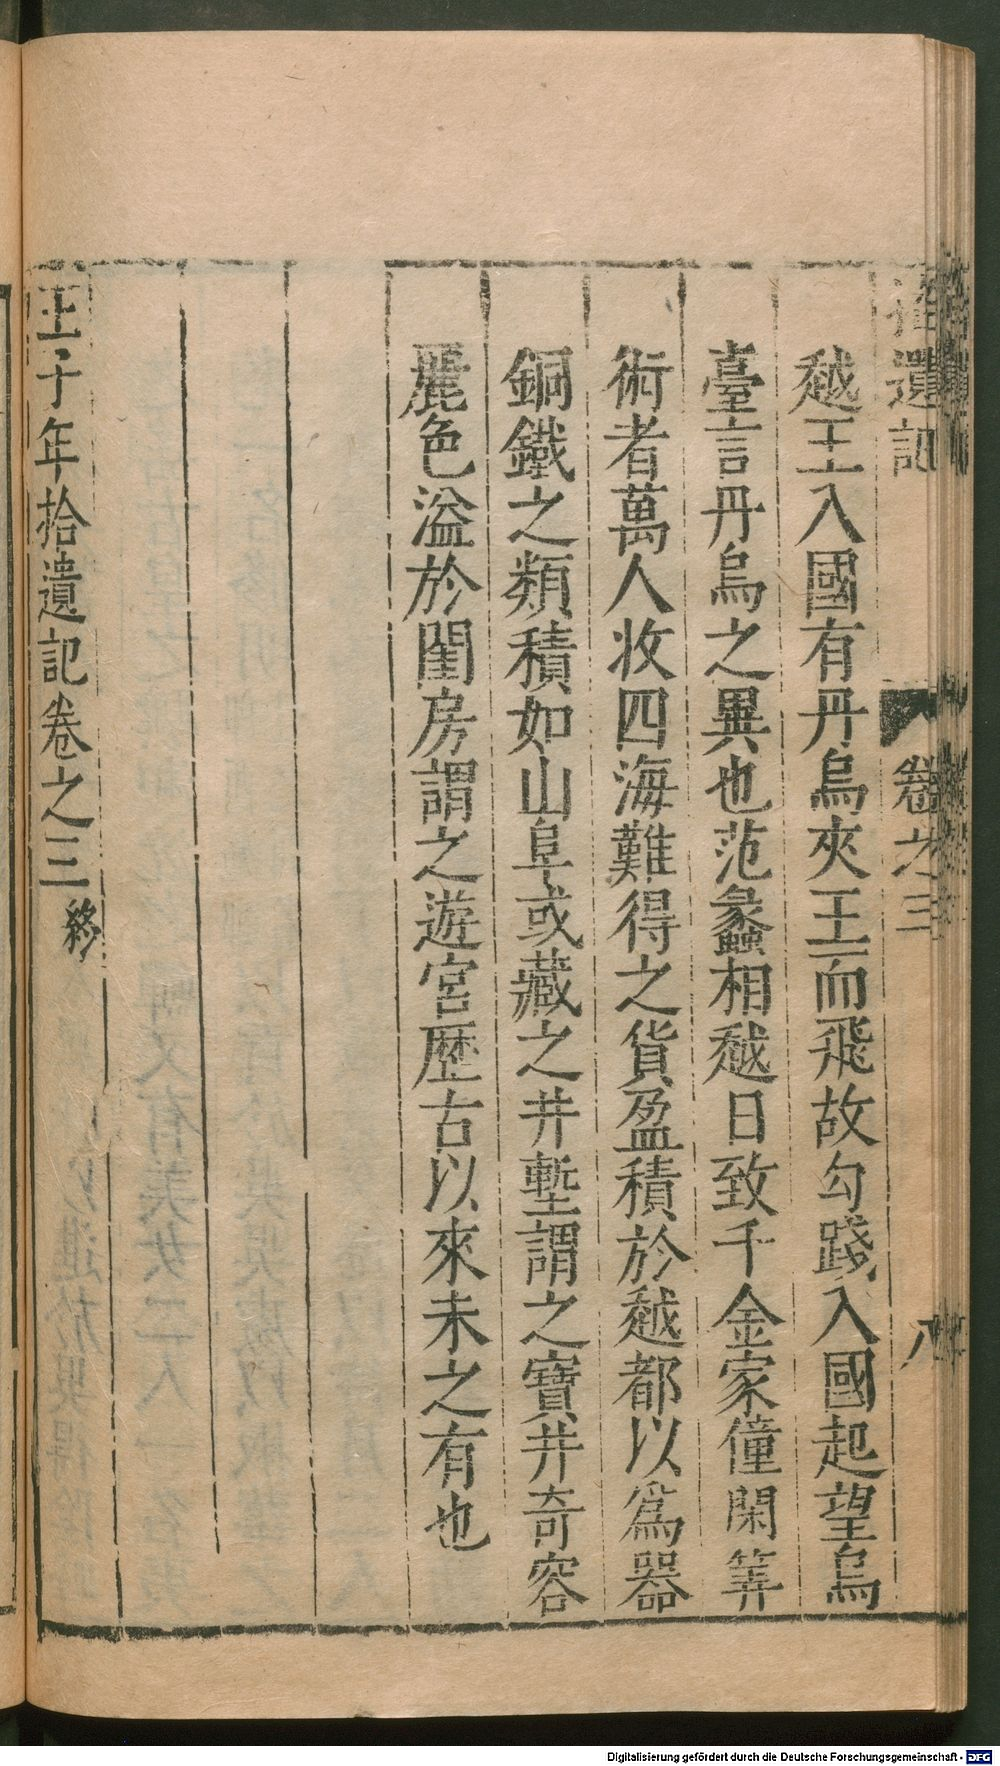 拾遺記 卷之三 八
越王入國有丹烏夾王而飛故勾踐入國起望烏
臺言丹烏之異也范蠡相越日致千金家僮閑筭
術者萬人收四海難得之貨盈積於越都以爲器
銅鐵之類積如山阜或藏之井塹謂之寶井奇容
麗色溢於閨房謂之遊宮歷古以來未之有也
王子年拾遺記卷之三終
Digitalisierung gefördert durch die Deutsche Forschungsgemeinschaft - DFG